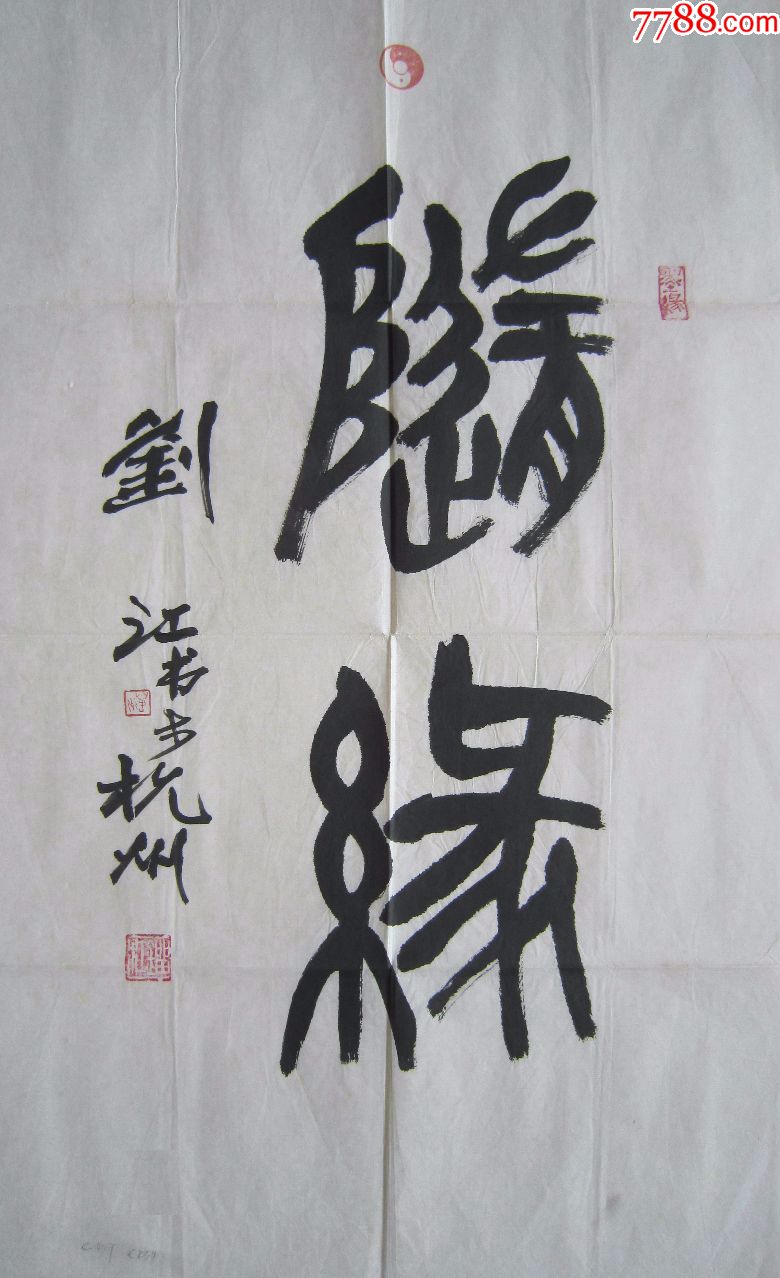 7788.com
隨緣
劉江书于杭州